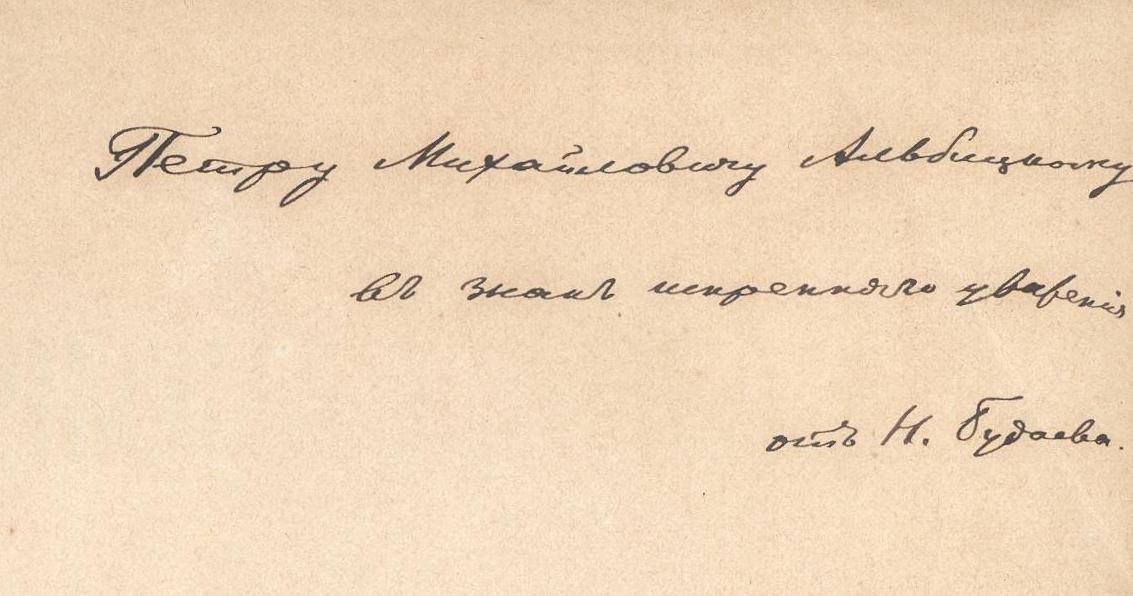 Петру Михайловичу Альбицкому
въ знакъ искренняго уваженія
отъ Н. Будаева.